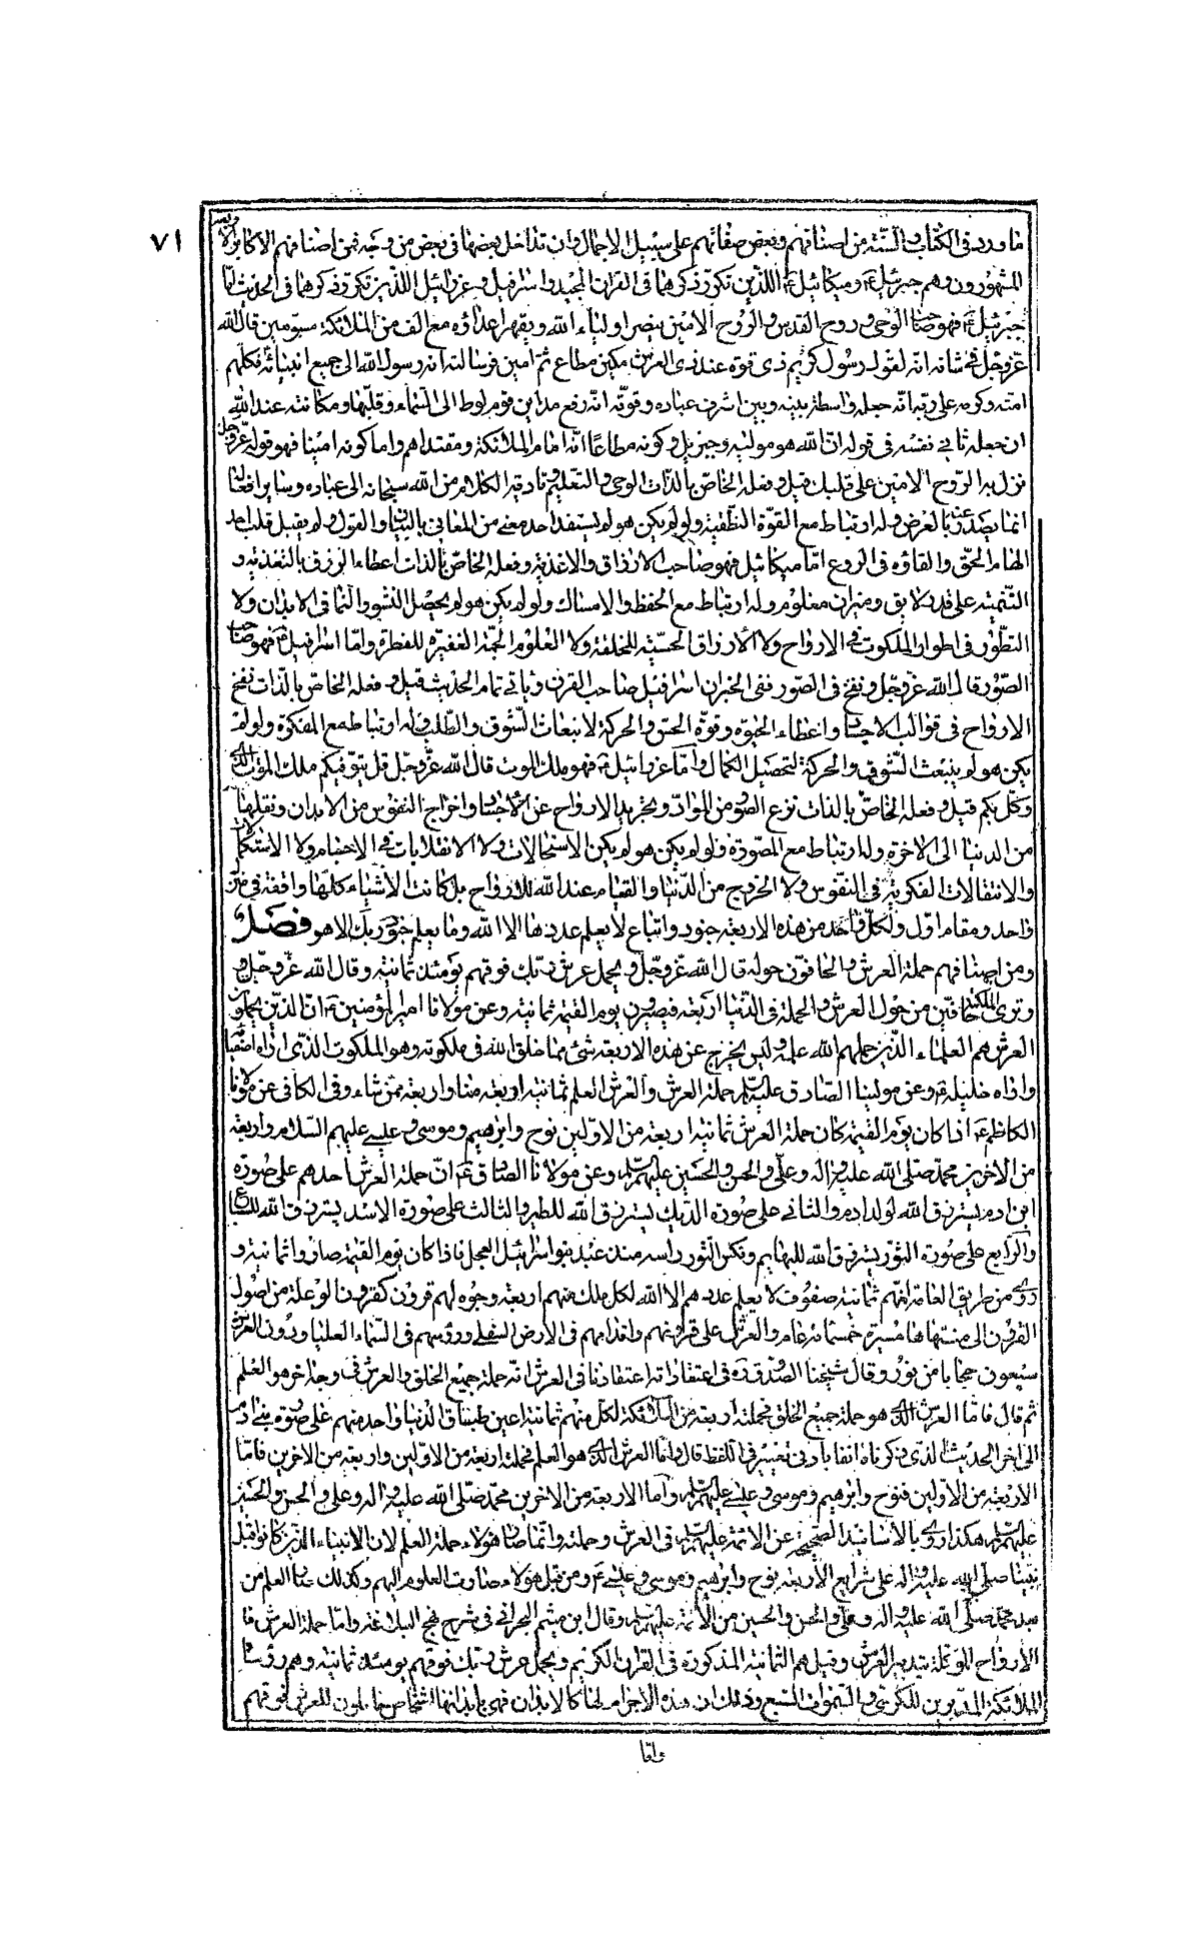 ٧١
ما ورد فى الكتاب والسنة من اصنافهم وبعض صفاتهم على سبيل الاجمال وان تداخل بعضها فى بعض من وجه فمن اصنافهم الاكابر
المشهورون وهم جبرئيل ع وميكائيل ع اللذين تكرر ذكرهما فى القران المجيد واسرافيل وعزرائيل اللذين تكرر ذكرهما فى الحديث اما
جبرئيل ع فهو صاحب الوحى وروح القدس والروح الامين ينصر اولياء الله ويقهر اعداؤه مع الف من الملائكة مسومين قال الله
عز وجل فى شانه انه لقول رسول كريم ذى قوة عند ذى العرش مكين مطاع ثم امين فرسالته انه رسول الله الى جميع انبيائه فكلهم
امته وكرمه على ربه انه جعله واسطة بينه وبين اشرف عباده وقوته انه رفع مداين قوم لوط الى السماء وقلبها ومكانته عند الله
ان جعله ثانى نفسه فى قوله ان الله هو موليه وجبريل وكونه مطاعا انه امام الملائكة ومقتداهم واما كونه امينا فهو قوله عز وجل
نزل به الروح الامين على قلبك قيل وفعله الخاص بالذات الوحى والتعليم وتادية الكلام من الله سبحانه الى عباده وساير افعاله
انما يصدر عنه بالعرض وله ارتباط مع القوة النطقية ولو لم يكن هو لم يستفد احد معنى من المعانى بالبيان والقول ولم يقبل قلب احد
الهام الحق والقاؤه فى الروع اما ميكائيل فهو صاحب الارزاق والاغذية وفعله الخاص بالذات اعطاء الرزق بالتغذية و
التنمية على قدر لايق وميزان معلوم وله ارتباط مع الحفظ والامساك ولو لم يكن هو لم يحصل النشو والنما فى الابدان ولا
التطور فى اطوار الملكوت فى الارواح ولا الارزاق الحسية للخلقة ولا العلوم الجمة الغفيرة للفطرة واما اسرافيل ع فهو صاحب
الصور قال الله عز وجل ونفخ فى الصور ففى الخبر ان اسرافيل صاحب القرن وياتى تمام الحديث قيل وفعله الخاص بالذات نفخ
الارواح فى قوالب الاجساد واعطاء الحيوة وقوة الحس والحركة لانبعاث الشوق والطلب وله ارتباط مع المفكرة ولو لم
يكن هو لم ينبعث الشوق والحركة لتحصيل الكمال واما عزرائيل ع فهو ملك الموت قال الله عز وجل قل يتوفيكم ملك الموت الذى
وكل بكم قيل وفعله الخاص بالذات نزع الصور من المواد وتجريد الارواح عن الاجساد واخراج النفوس من الابدان ونقلها
من الدنيا الى الاخرة وله ارتباط مع المصورة ولو لم يكن هو لم يكن الاستحالات ولا الانقلابات فى الاجسام ولا الاستكمال
والانتقالات الفكرية فى النفوس ولا الخروج من الدنيا والقيام عند الله للارواح بل كانت الاشياء كلها واقفة فى منزل
واحد ومقام اول ولكل واحد من هذه الاربعة جنود واتباع لا يعلم عددها الا الله وما يعلم جنود ربك الا هو فصل
ومن اصنافهم حملة العرش والحافون حوله قال الله عز وجل ويحمل عرش ربك فوقهم يومئذ ثمانية وقال الله عز وجل
وترى الملئكة حافين من حول العرش والحملة فى الدنيا اربعة فيصيرون يوم القيمة ثمانية وعن مولانا امير المؤمنين ع ان الذين يحملون
العرش هم العلماء الذين حملهم الله علمه وليس يخرج عن هذه الاربعة شئ مما خلق الله فى ملكوته وهو الملكوت الذى اراه اصفيائه
واراه خليله ع وعن مولينا الصادق عليه السلم حملة العرش والعرش العلم ثمانية اربعة منا واربعة ممن شاء وفى الكافى عن مولانا
الكاظم ع اذا كان يوم القيمة كان حملة العرش ثمانية اربعة من الاولين نوح وابرهيم وموسى وعيسى عليهم السلام واربعة
من الاخرين محمد صلى الله عليه واله وعلى والحسن والحسين عليهم السلم وعن مولانا الصادق ع ان حملة العرش احدهم على صورة
ابن ادم يسترزق الله لولد ادم والثانى على صورة الديك يسترزق الله للطير والثالث على صورة الاسد يسترزق الله للسباع
والرابع على صورة الثور يسترزق الله للبهايم ونكس الثور راسه منذ عبد بنو اسرائيل العجل فاذا كان يوم القيمة صاروا ثمانية و
روى من طريق العامة انهم ثمانية صفوف لا يعلم عددهم الا الله لكل ملك منهم اربعة وجوه لهم قرون كقرون الوعلة من اصول
القرون الى منتهاها مسيرة خمسمائة عام والعرش على قرونهم واقدامهم فى الارض السفلى ورؤسهم فى السماء العليا ودون العرش
سبعون حجابا من نور وقال شيخنا الصدوق ره فى اعتقاداته اعتقادنا فى العرش انه حملة جميع الخلق والعرش فى وجه اخر هو العلم
ثم قال فاما العرش الذى هو حملة جميع الخلق فحملته اربعة من الملائكة لكل منهم ثمانية اعين طباق الدنيا واحد منهم على صورة بنى ادم
الى اخر الحديث الذى ذكرناه انفا بادنى تغيير فى اللفظ قال واما العرش الذى هو العلم فحملته اربعة من الاولين واربعة من الاخرين فاما
الاربعة من الاولين فنوح وابرهيم وموسى وعيسى عليهم السلم واما الاربعة من الاخرين محمد صلى الله عليه واله وعلى والحسن والحسين
عليهم السلم هكذا روى بالاسانيد الصحيحة عن الائمة عليهم السلم فى العرش وحملته وانما صار هؤلاء حملة العلم لان الانبياء الذين كانوا قبل
نبينا صلى الله عليه واله على شرايع الاربعة نوح وابرهيم وموسى وعيسى ع ومن قبل هؤلاء صارت العلوم اليهم وكذلك صار العلم من
بعد محمد صلى الله عليه واله وعلى والحسن والحسين من الائمة عليهم السلم وقال ابن ميثم البحرانى فى شرح نهج البلاغة واما حملة العرش فا
الارواح الموكلة بتدبير العرش وقيل هم الثمانية المذكورة فى القران الكريم ويحمل عرش ربك فوقهم يومئذ ثمانية وهم رؤساء
الملائكة المدبرين للكرسى والسموات السبع وذلك ان هذه الاجرام لها كالابدان فهى بابدانها اشخاص حاملون للعرش فوقهم
واما